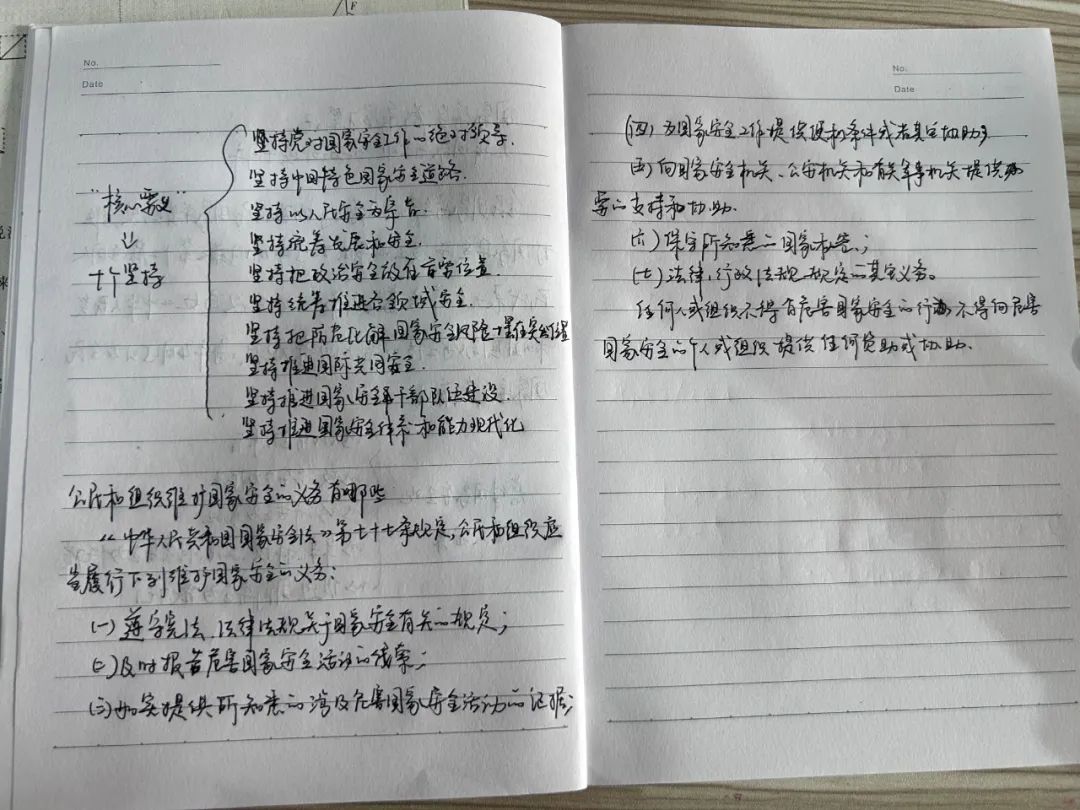 No.
Date
坚持党对国家安全工作的绝对领导.
坚持中国特色国家安全道路.
坚持以人民安全为宗旨.
坚持统筹发展和安全.
坚持把政治安全放在首要位置.
坚持统筹推进各领域安全.
坚持把防范化解国家安全风险摆在突出位置
坚持推进国际共同安全.
坚持推进国家安全干部队伍建设.
坚持推进国家安全体系和能力现代化
"核心要义"
↓
十个坚持
公民和组织维护国家安全的义务有哪些
《中华人民共和国国家安全法》第七十七条规定,公民和组织应
当履行下列维护国家安全的义务:
(一)遵守宪法、法律法规关于国家安全有关的规定;
(二)及时报告危害国家安全活动的线索;
(三)如实提供所知悉的涉及危害国家安全活动的证据;
No.
Date
(四)为国家安全工作提供便利条件或者其它协助;
(五)向国家安全机关、公安机关和有关军事机关提供必
要的支持和协助.
(六)保守所知悉的国家秘密;
(七)法律,行政法规规定的其它义务。
任何人或组织不得有危害国家安全的行为不得向危害
国家安全的个人或组织提供任何资助或协助.
F